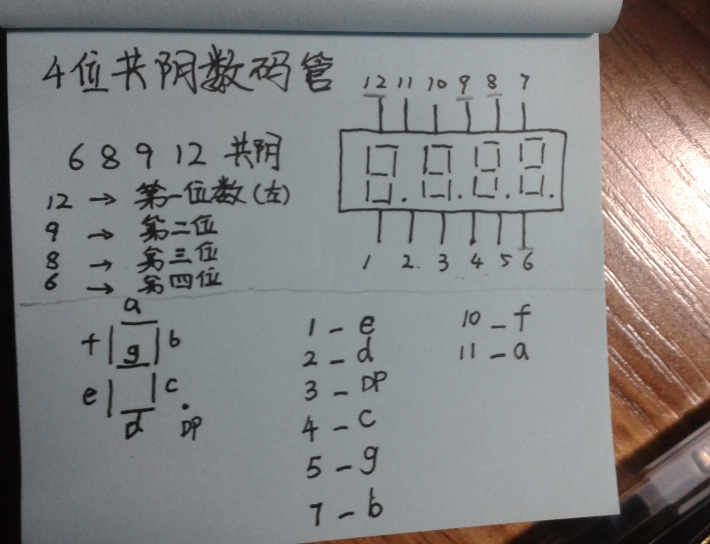 4位共阴数码管
6 8 9 12 共阴
12 → 第一位数(左)
9 → 第二位
8 → 第三位
6 → 第四位
12 11 10 9 8 7
1 2. 3 4 5 6
a
f g b
e c
d DP
1 - e
2 - d
3 - DP
4 - c
5 - g
7 - b
10 - f
11 - a